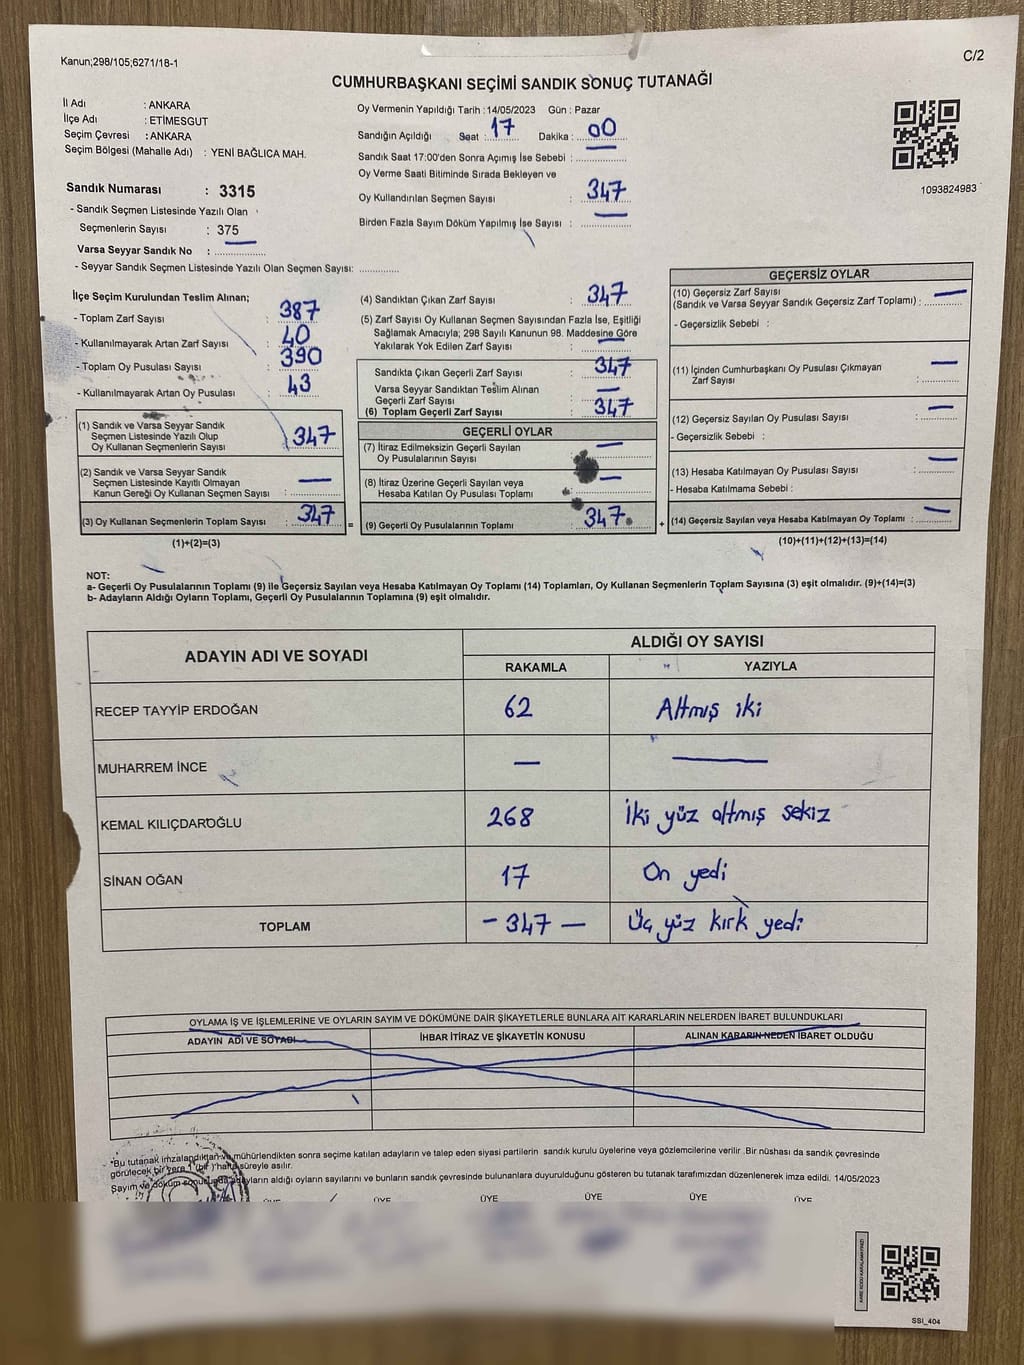 Kanun;298/105;6271/18-1
C/2
CUMHURBAŞKANI SEÇİMİ SANDIK SONUÇ TUTANAĞI
İl Adı : ANKARA
İlçe Adı : ETİMESGUT
Seçim Çevresi : ANKARA
Seçim Bölgesi (Mahalle Adı) : YENİ BAĞLICA MAH.
Oy Vermenin Yapıldığı Tarih : 14/05/2023 Gün : Pazar
Sandığın Açıldığı Saat : 17 Dakika : 00
Sandık Saat 17:00'den Sonra Açımış İse Sebebi :
Oy Verme Saati Bitiminde Sırada Bekleyen ve
Oy Kullandırılan Seçmen Sayısı : 347
Birden Fazla Sayım Döküm Yapılmış İse Sayısı :
1093824983
Sandık Numarası : 3315
- Sandık Seçmen Listesinde Yazılı Olan
Seçmenlerin Sayısı : 375
Varsa Seyyar Sandık No :
- Seyyar Sandık Seçmen Listesinde Yazılı Olan Seçmen Sayısı:
İlçe Seçim Kurulundan Teslim Alınan;
- Toplam Zarf Sayısı : 387
- Kullanılmayarak Artan Zarf Sayısı : 40
- Toplam Oy Pusulası Sayısı : 390
- Kullanılmayarak Artan Oy Pusulası : 43
(1) Sandık ve Varsa Seyyar Sandık
Seçmen Listesinde Yazılı Olup
Oy Kullanan Seçmenlerin Sayısı : 347
(2) Sandık ve Varsa Seyyar Sandık
Seçmen Listesinde Kayıtlı Olmayan
Kanun Gereği Oy Kullanan Seçmen Sayısı : —
(3) Oy Kullanan Seçmenlerin Toplam Sayısı : 347 =
(1)+(2)=(3)
(4) Sandıktan Çıkan Zarf Sayısı : 347
(5) Zarf Sayısı Oy Kullanan Seçmen Sayısından Fazla İse, Eşitliği
Sağlamak Amacıyla; 298 Sayılı Kanunun 98. Maddesine Göre
Yakılarak Yok Edilen Zarf Sayısı : —
Sandıkta Çıkan Geçerli Zarf Sayısı : 347
Varsa Seyyar Sandıktan Teslim Alınan
Geçerli Zarf Sayısı : —
(6) Toplam Geçerli Zarf Sayısı : 347
GEÇERLİ OYLAR
(7) İtiraz Edilmeksizin Geçerli Sayılan
Oy Pusulalarının Sayısı : —
(8) İtiraz Üzerine Geçerli Sayılan veya
Hesaba Katılan Oy Pusulası Toplamı : —
(9) Geçerli Oy Pusulalarının Toplamı : 347 +
GEÇERSİZ OYLAR
(10) Geçersiz Zarf Sayısı
(Sandık ve Varsa Seyyar Sandık Geçersiz Zarf Toplamı) : —
- Geçersizlik Sebebi :
(11) İçinden Cumhurbaşkanı Oy Pusulası Çıkmayan
Zarf Sayısı : —
(12) Geçersiz Sayılan Oy Pusulası Sayısı : —
- Geçersizlik Sebebi :
(13) Hesaba Katılmayan Oy Pusulası Sayısı : —
- Hesaba Katılmama Sebebi :
(14) Geçersiz Sayılan veya Hesaba Katılmayan Oy Toplamı : —
(10)+(11)+(12)+(13)=(14)
NOT:
a- Geçerli Oy Pusulalarının Toplamı (9) ile Geçersiz Sayılan veya Hesaba Katılmayan Oy Toplamı (14) Toplamları, Oy Kullanan Seçmenlerin Toplam Sayısına (3) eşit olmalıdır. (9)+(14)=(3)
b- Adayların Aldığı Oyların Toplamı, Geçerli Oy Pusulalarının Toplamına (9) eşit olmalıdır.
ADAYIN ADI VE SOYADI
ALDIĞI OY SAYISI
RAKAMLA YAZIYLA
RECEP TAYYİP ERDOĞAN 62 Altmış iki
MUHARREM İNCE — —
KEMAL KILIÇDAROĞLU 268 İki yüz altmış sekiz
SİNAN OĞAN 17 On yedi
TOPLAM - 347 — Üç yüz kırk yedi
OYLAMA İŞ VE İŞLEMLERİNE VE OYLARIN SAYIM VE DÖKÜMÜNE DAİR ŞİKAYETLERLE BUNLARA AİT KARARLARIN NELERDEN İBARET BULUNDUKLARI
ADAYIN ADI VE SOYADI İHBAR İTİRAZ VE ŞİKAYETİN KONUSU ALINAN KARARIN NEDEN İBARET OLDUĞU
*Bu tutanak imzalandıktan ve mühürlendikten sonra seçime katılan adayların ve talep eden siyasi partilerin sandık kurulu üyelerine veya gözlemcilerine verilir .Bir nüshası da sandık çevresinde
görülecek bir yere 1 (bir) hafta süreyle asılır.
Sayım ve döküm sonucunda adayların aldığı oyların sayılarını ve bunların sandık çevresinde bulunanlara duyurulduğunu gösteren bu tutanak tarafımızdan düzenlenerek imza edildi. 14/05/2023
ÜYE ÜYE ÜYE ÜYE ÜYE ÜYE
SSI_404